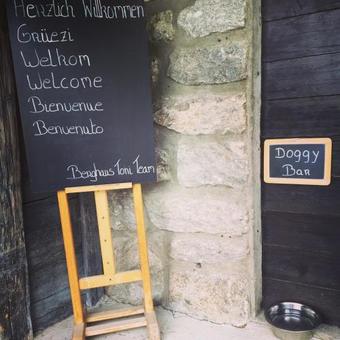 Herzlich Willkommen
Grüezi
Welkom
Welcome
Bienvenue
Benvenuto
Berghaus Toni Team
Doggy
Bar